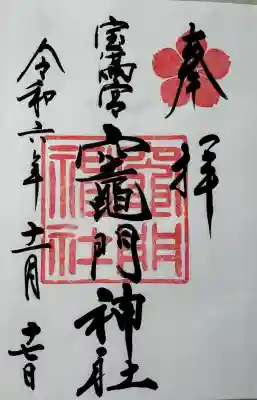 奉拝
宝満宮
竈門神社
令和六年十一月十七日
竈門神社